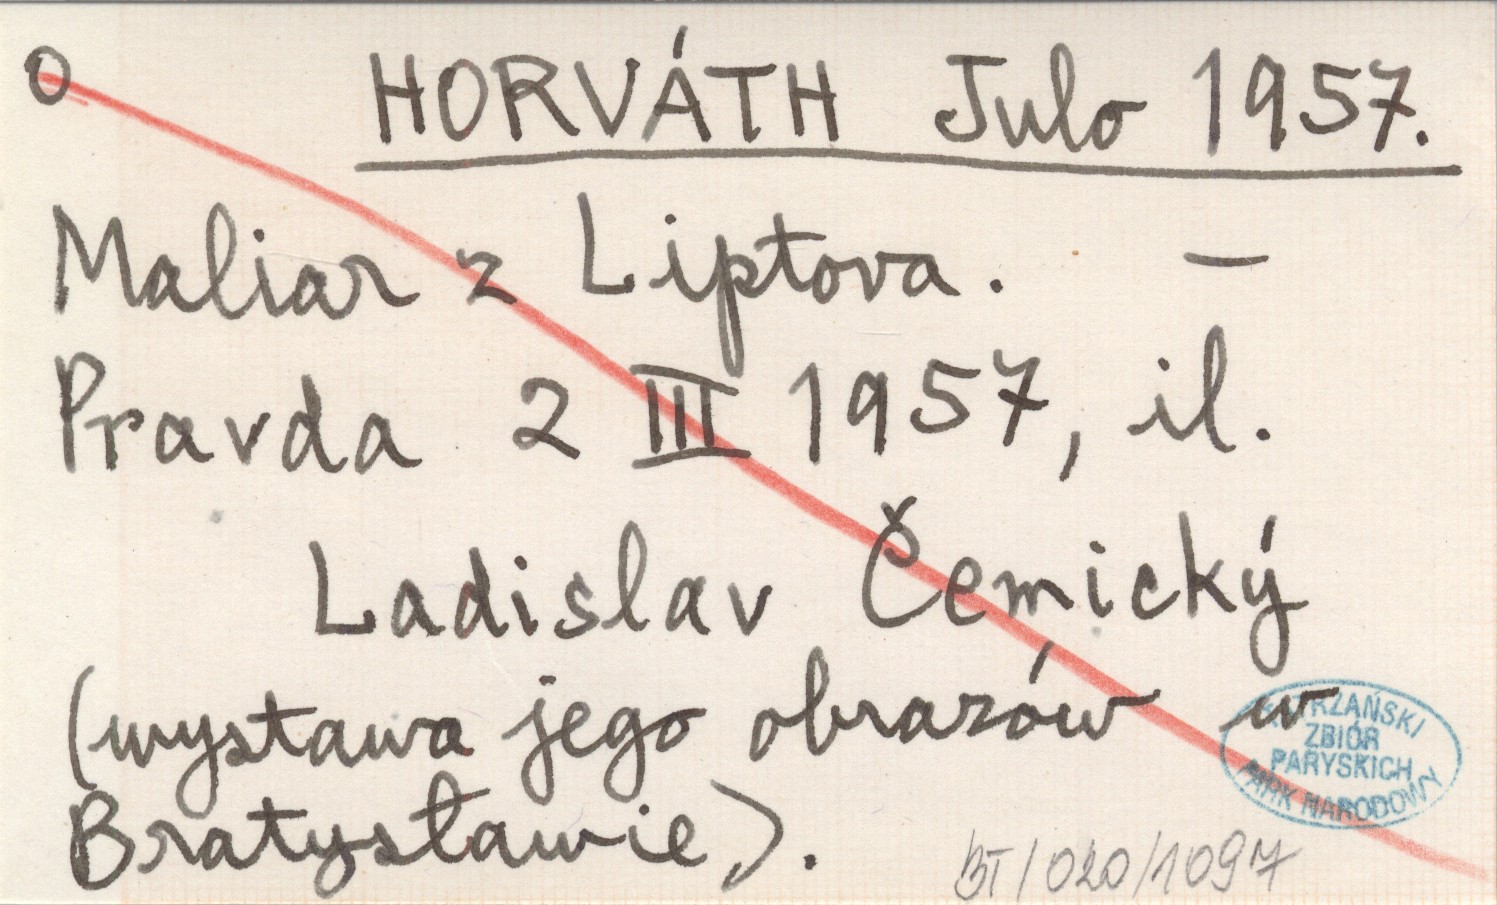 O HORVÁTH Julo 1957.
Maliar z Liptova. —
Pravda 2 III 1957, il.
Ladislav Čemický
(wystawa jego obrazów w
Bratysławie).
TATRZAŃSKI
ZBIÓR
PARYSKICH
PARK NARODOWY
BT/020/1097